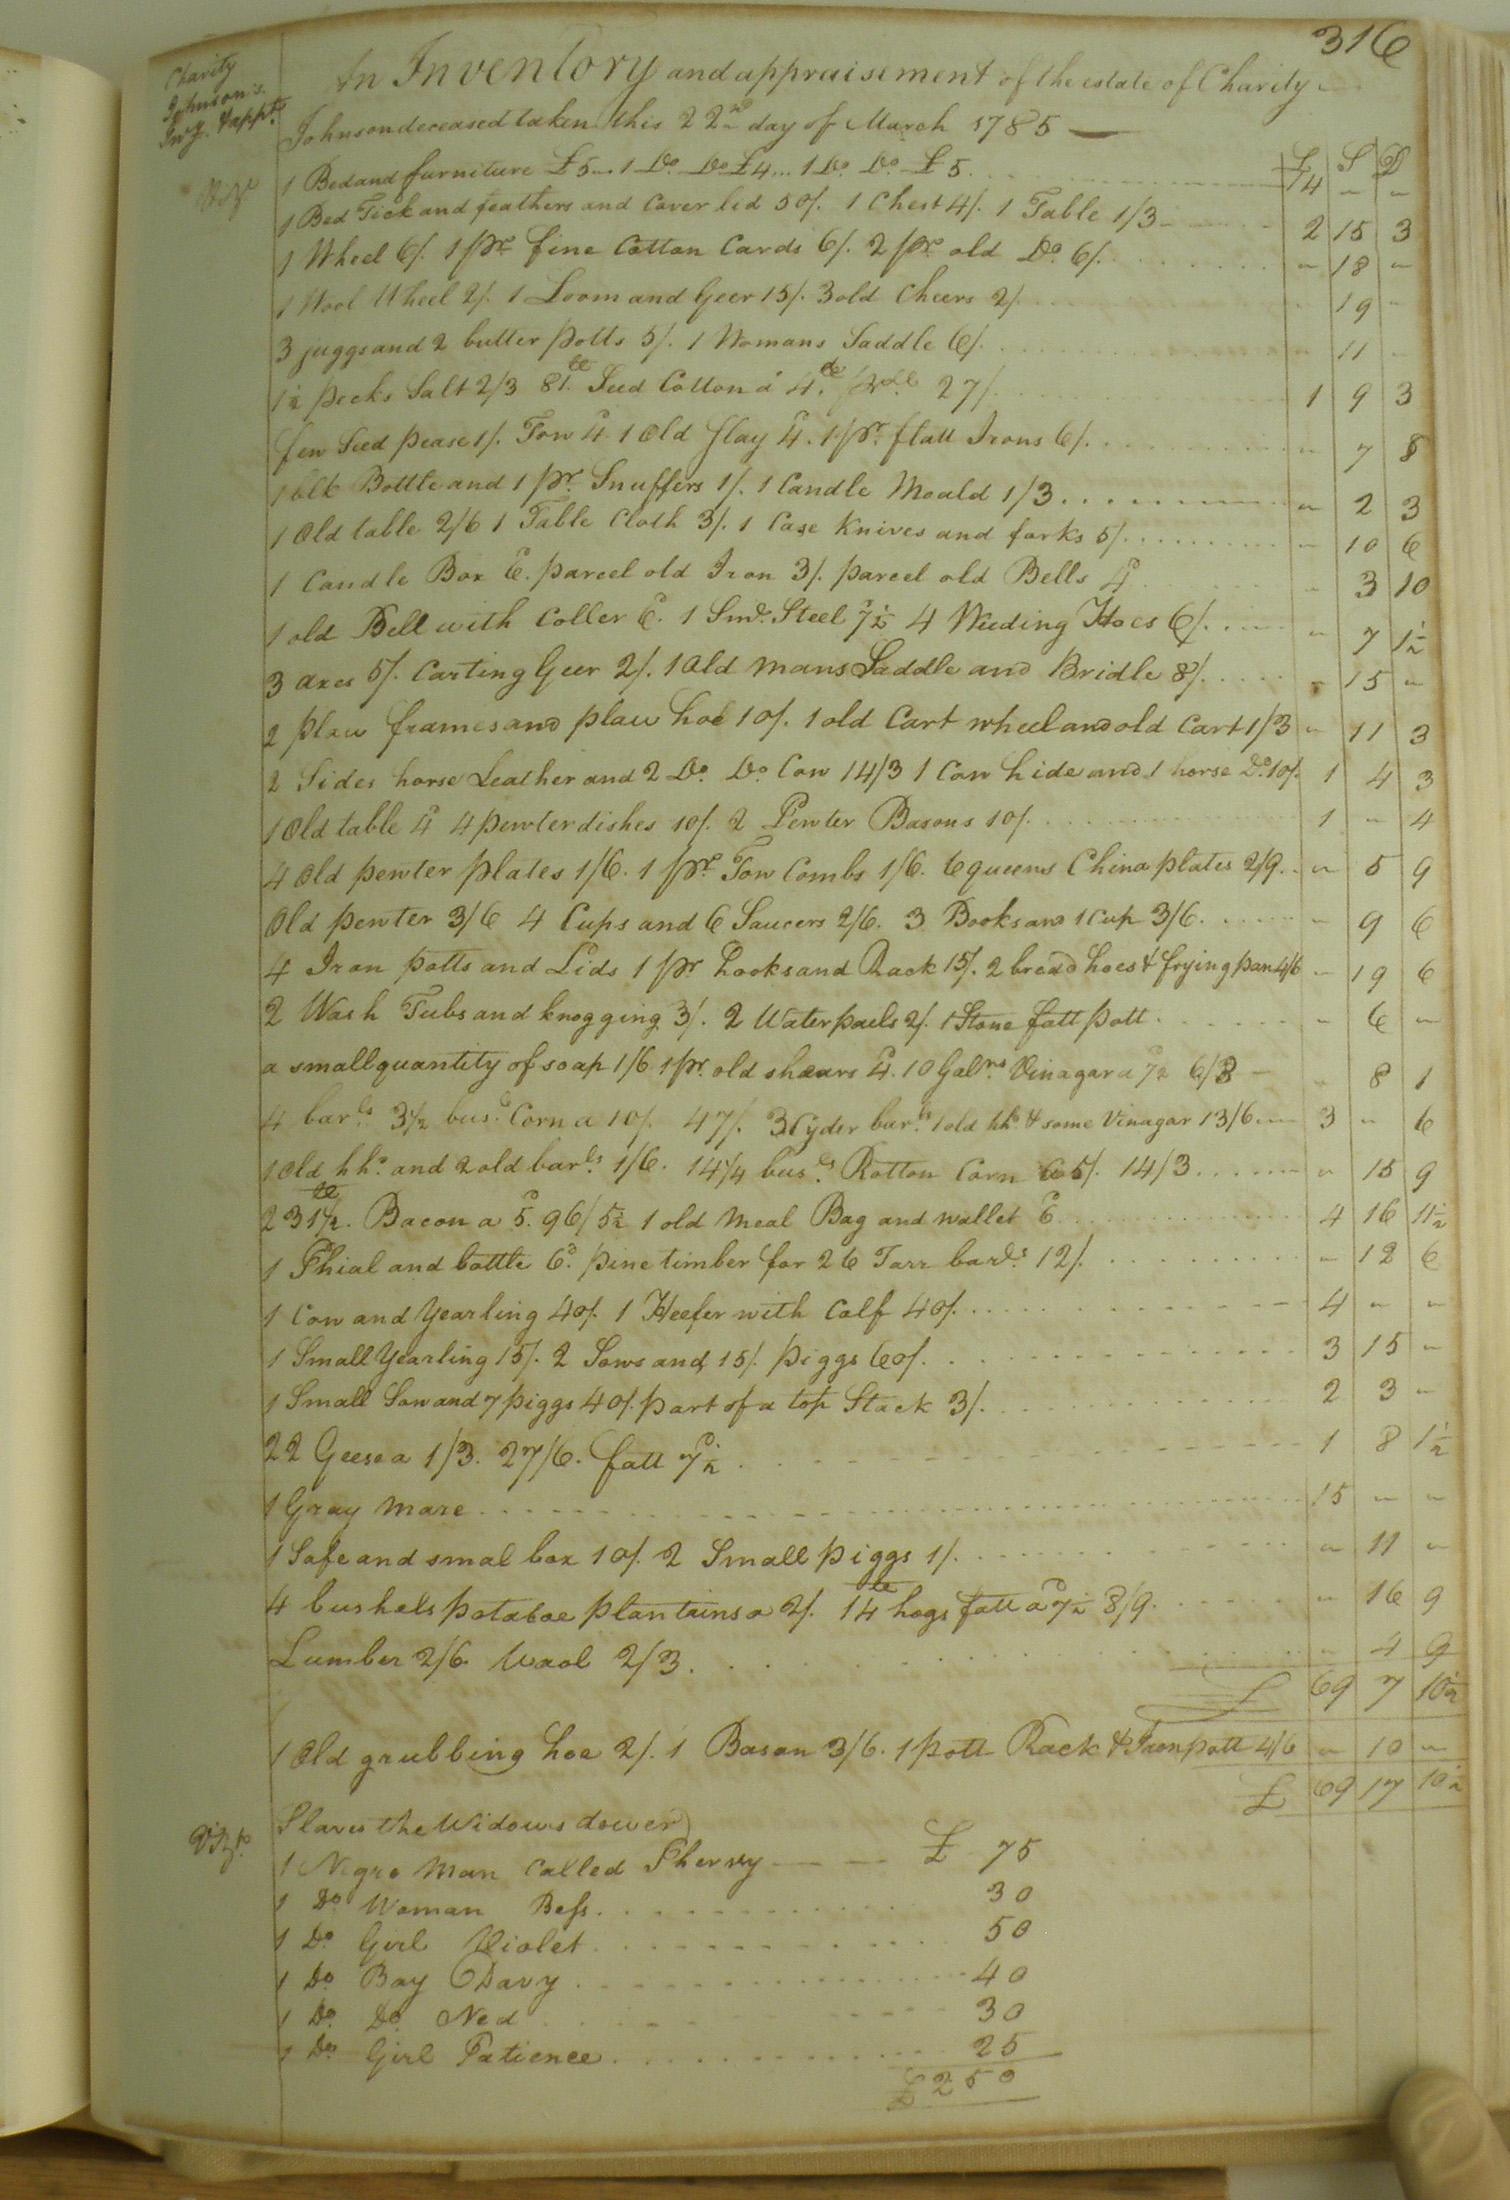 316
Charity
Johnson's
Invy. & appt.
An Inventory and appraisement of the estate of Charity
Johnson deceased taken this 22nd day of March 1785
£ S D
Vizt 1 Bed and furniture £5 .. 1 Do. Do £4 ... 1 Do. Do. £5 14 - -
1 Bed Tick and feathers and Coverlid 50/. 1 Chest 4/. 1 Table 1/3 2 15 3
1 Wheel 6/. 1 pr. fine Cotton Cards 6/. 2 pr. old Do. 6/. - 18 -
1 Wool Wheel 2/. 1 Loom and Geer 15/. 3 old Cheers 2/. - 19 -
3 juggs and 2 butter potts 5/. 1 Womans Saddle 6/. - 11 -
1½ pecks Salt 2/3 81 lb. Seed Cotton a 4d. 27/. 1 9 3
few Seed pease 1/. Tow 4d. 1 Old Slay 4d. 1 pr. flatt Irons 6/. - 7 8
1 blk Bottle and 1 pr. Snuffers 1/. 1 Candle Moald 1/3 - 2 3
1 Old table 2/6 1 Table Cloth 3/. 1 Case Knives and forks 5/. - 10 6
1 Candle Box 6d. parcel old Iron 3/. parcel old Bells 4d - 3 10
1 old Bell with Coller 6d. 1 Smd. Steel 7½d 4 Weeding Hoes 6/. - 7 1½
3 axes 5/. Carting Geer 2/. 1 Old mans Saddle and Bridle 8/. - 15 -
2 plow frames and plow hoe 10/. 1 old Cart wheel and old Cart 1/3 - 11 3
2 Sides horse Leather and 2 Do. Do. Cow 14/3 1 Cow hide and 1 horse Do. 10/. 1 4 3
1 Old table 4d 4 pewter dishes 10/. 2 Pewter Basons 10/. 1 - 4
4 Old pewter plates 1/6. 1 pr. Tow Combs 1/6. 6 queens China plates 2/9. - 5 9
Old pewter 3/6 4 Cups and 6 Saucers 2/6. 3 Books and 1 Cup 3/6. - 9 6
4 Iron potts and Lids 1 pr hooks and Rack 15/. 2 bread hoes & frying pan 4/6 - 19 6
2 Wash Tubs and knogging 3/. 2 Water paels 2/. 1 Stone fatt pott - 6 -
a small quantity of soap 1/6 1 pr. old shears 4d. 10 Galns. Vinagar a 7½ 6/3 - 8 1
4 barls. 3½ busls. Corn a 10/. 47/. 3 Cyder barls. 1 old hhd. & some Vinagar 13/6 3 - 6
1 Old hhd. and 2 old barls. 1/6. 14¼ busls. Rotton Corn a 5/. 14/3 - 15 9
231½ lb. Bacon a 5d. 96/5½ 1 old meal Bag and wallet 6d 4 16 11½
1 Phial and bottle 6d. pine timber for 26 Tarr barls. 12/. - 12 6
1 Cow and Yearling 40/. 1 Heefer with Calf 40/. 4 - -
1 Small Yearling 15/. 2 Sows and 15/. piggs 60/. 3 15 -
1 Small Sow and 7 piggs 40/. part of a top Stack 3/. 2 3 -
22 Geese a 1/3. 27/6. fatt 7½d 1 8 1½
1 Gray mare 15 - -
1 Safe and smal box 10/. 2 Small piggs 1/. - 11 -
4 bushels potatoe plantains a 2/. 14 lb hogs fatt a 7½d 8/9. - 16 9
Lumber 2/6 Wool 2/3. - 4 9
£ 69 7 10½
1 Old grubbing hoe 2/. 1 Bason 3/6. 1 pott Rack & Iron pott 4/6 - 10 -
£ 69 17 10½
Vizt. Slaves the Widows dower
1 Negro Man Called Sherry £ 75
1 Do Woman Bess 30
1 Do Girl Violet 50
1 Do Boy Davy 40
1 Do. Do. Ned 30
1 Do Girl Patience 25
£250